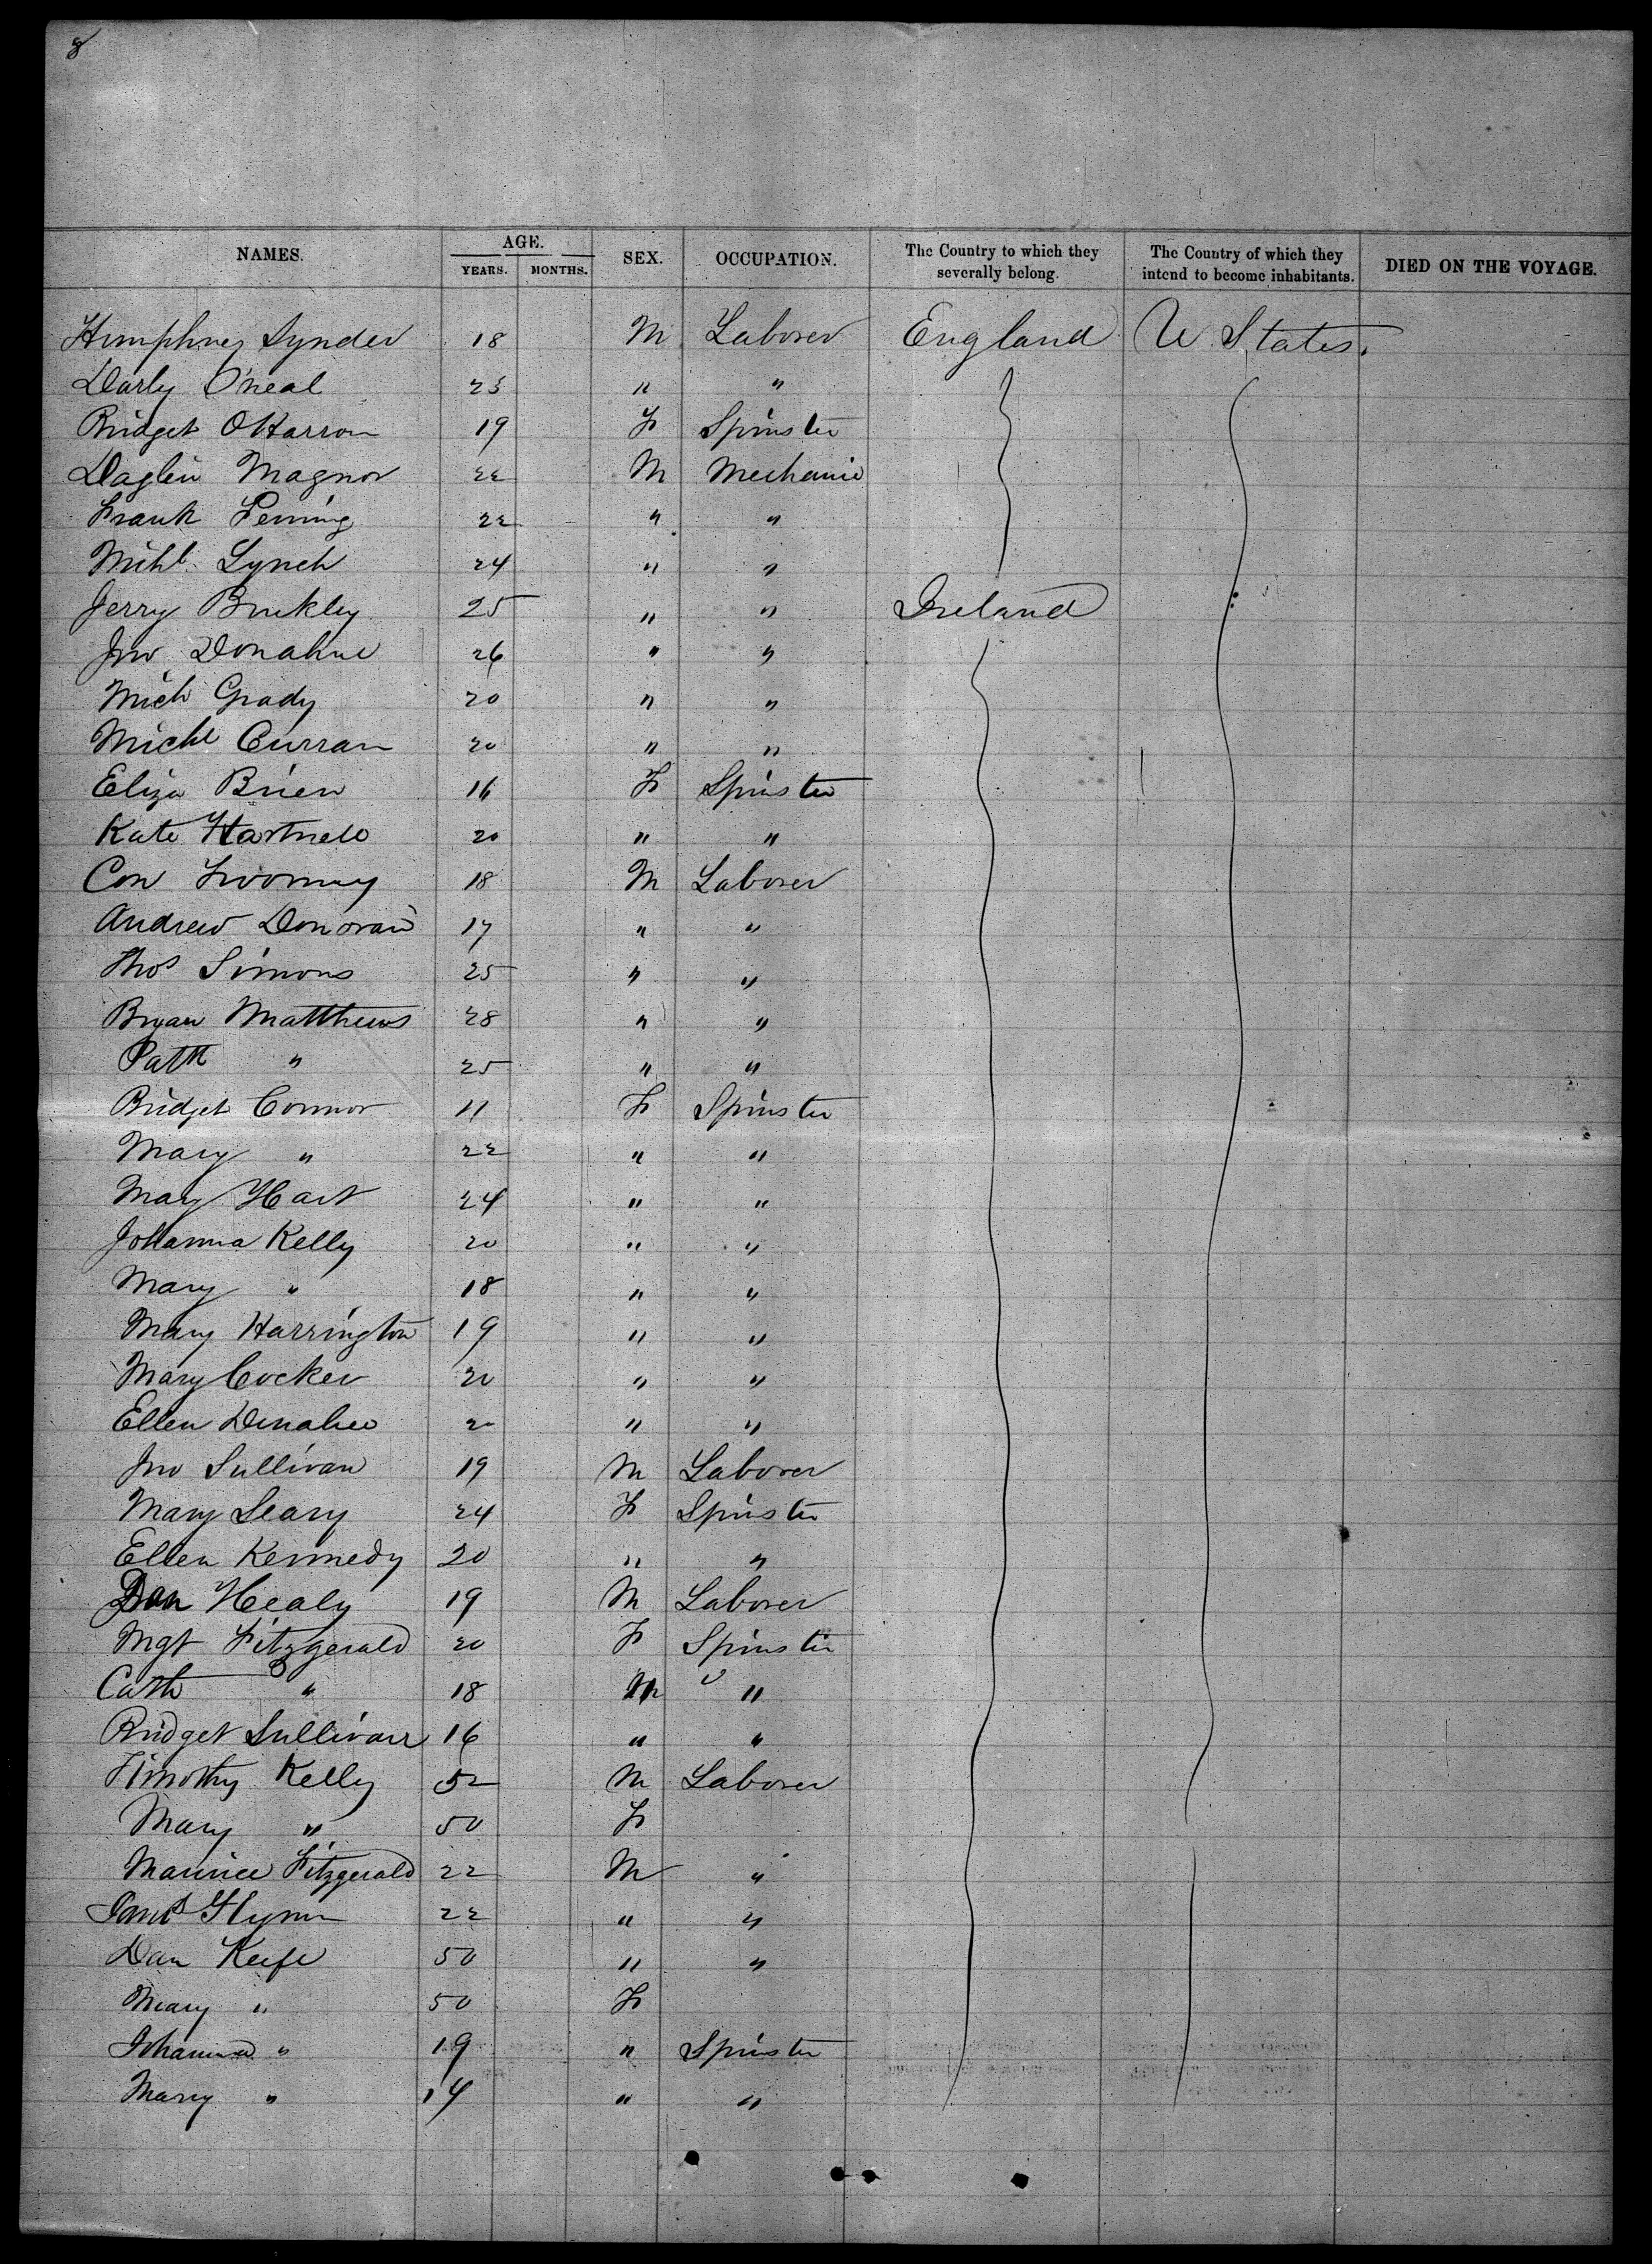 8
NAMES. AGE. YEARS. MONTHS. SEX. OCCUPATION. The Country to which they severally belong. The Country of which they intend to become inhabitants. DIED ON THE VOYAGE.
Humphrey Synder 18 M Laborer England U. States.
Darly O'neal 23 " "
Bridget OHarron 19 F Spinster
Daglin Magnor 22 M Mechanic
Frank Feming 22 " "
Michl. Lynch 24 " "
Jerry Buckley 25 " " Ireland
Jno Donahue 26 " "
Mich Grady 20 " "
Michl Curran 20 " "
Eliza Brien 16 F Spinster
Kate Hartnell 20 " "
Con Twomey 18 M Laborer
Andrew Donovan 17 " "
Thos Simons 25 " "
Bryan Matthews 28 " "
Patk " 25 " "
Bridget Connor 11 F Spinster
Mary " 22 " "
Mary Hart 24 " "
Johanna Kelly 20 " "
Mary " 18 " "
Mary Harrington 19 " "
Mary Cocker 20 " "
Ellen Donahue 20 " "
Jno Sullivan 19 M Laborer
Mary Leary 24 F Spinster
Ellen Kennedy 20 " "
Dan Healy 19 M Laborer
Mgt Fitzgerald 20 F Spinster
Cath " 18 " "
Bridget Sullivan 16 " "
Timothy Kelly 52 M Laborer
Mary " 50 F
Maurice Fitzgerald 22 M "
James Flynn 22 " "
Dan Keefe 50 " "
Mary " 50 F
Johanna " 19 " Spinster
Mary " 14 " "